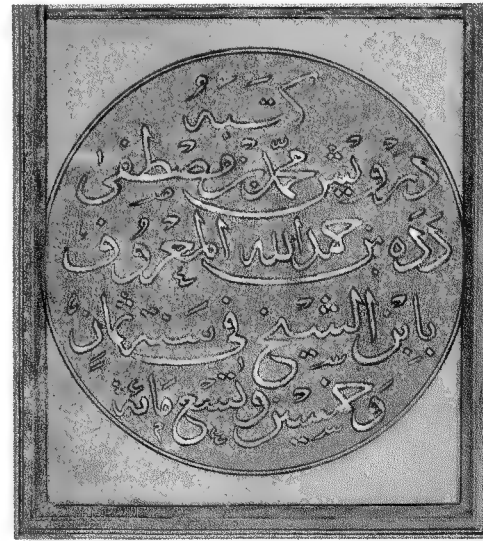 كتبه
درويش محمد بن مصطفى
دده بن حمد الله المعروف
بابن الشيخ في سنة ثمان
وخمسين وتسع مائة